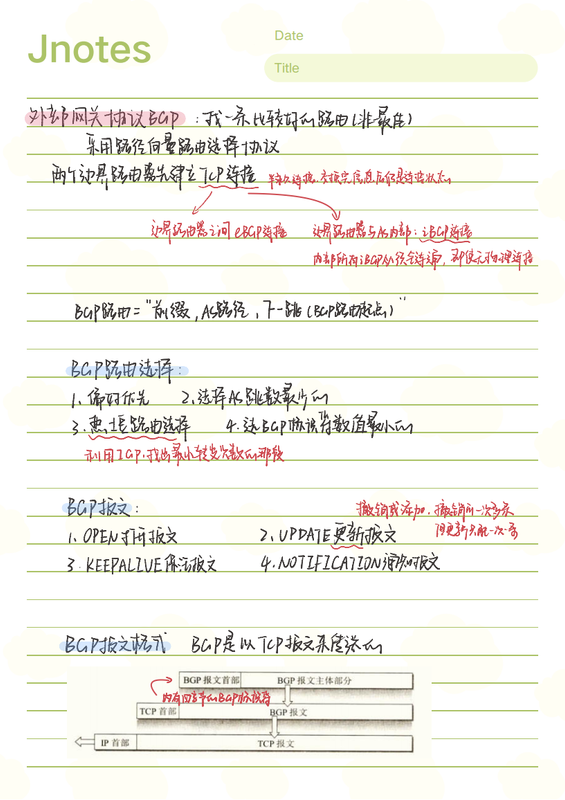 Jnotes
Date
Title
外部网关协议BGP：找一条比较好的路由(非最佳)
采用路径向量路由选择协议
两个边界路由器先建立TCP连接 半永久连接，交换完信息后仍是连接状态
边界路由器之间eBGP连接 边界路由器与AS内部：iBGP连接
内部所有iBGP必须全连通，即使无物理连接
BGP路由="前缀，AS路径，下一跳(BGP路由起点)"
BGP路由选择：
1、偏好优先 2、选择AS跳数最少的
3、热土豆路由选择 4、选BGP标识符数值最小的
利用IGP，找出最小转发次数的那段
BGP报文：
撤销或添加，撤销可一次多条
但更新只能一次一条
1、OPEN打开报文 2、UPDATE更新报文
3、KEEPALIVE保活报文 4、NOTIFICATION通知报文
BGP报文格式 BGP是以TCP报文来传送的
BGP 报文首部 BGP 报文主体部分
内有四字节的BGP标识符
TCP 首部 BGP 报文
IP 首部 TCP 报文